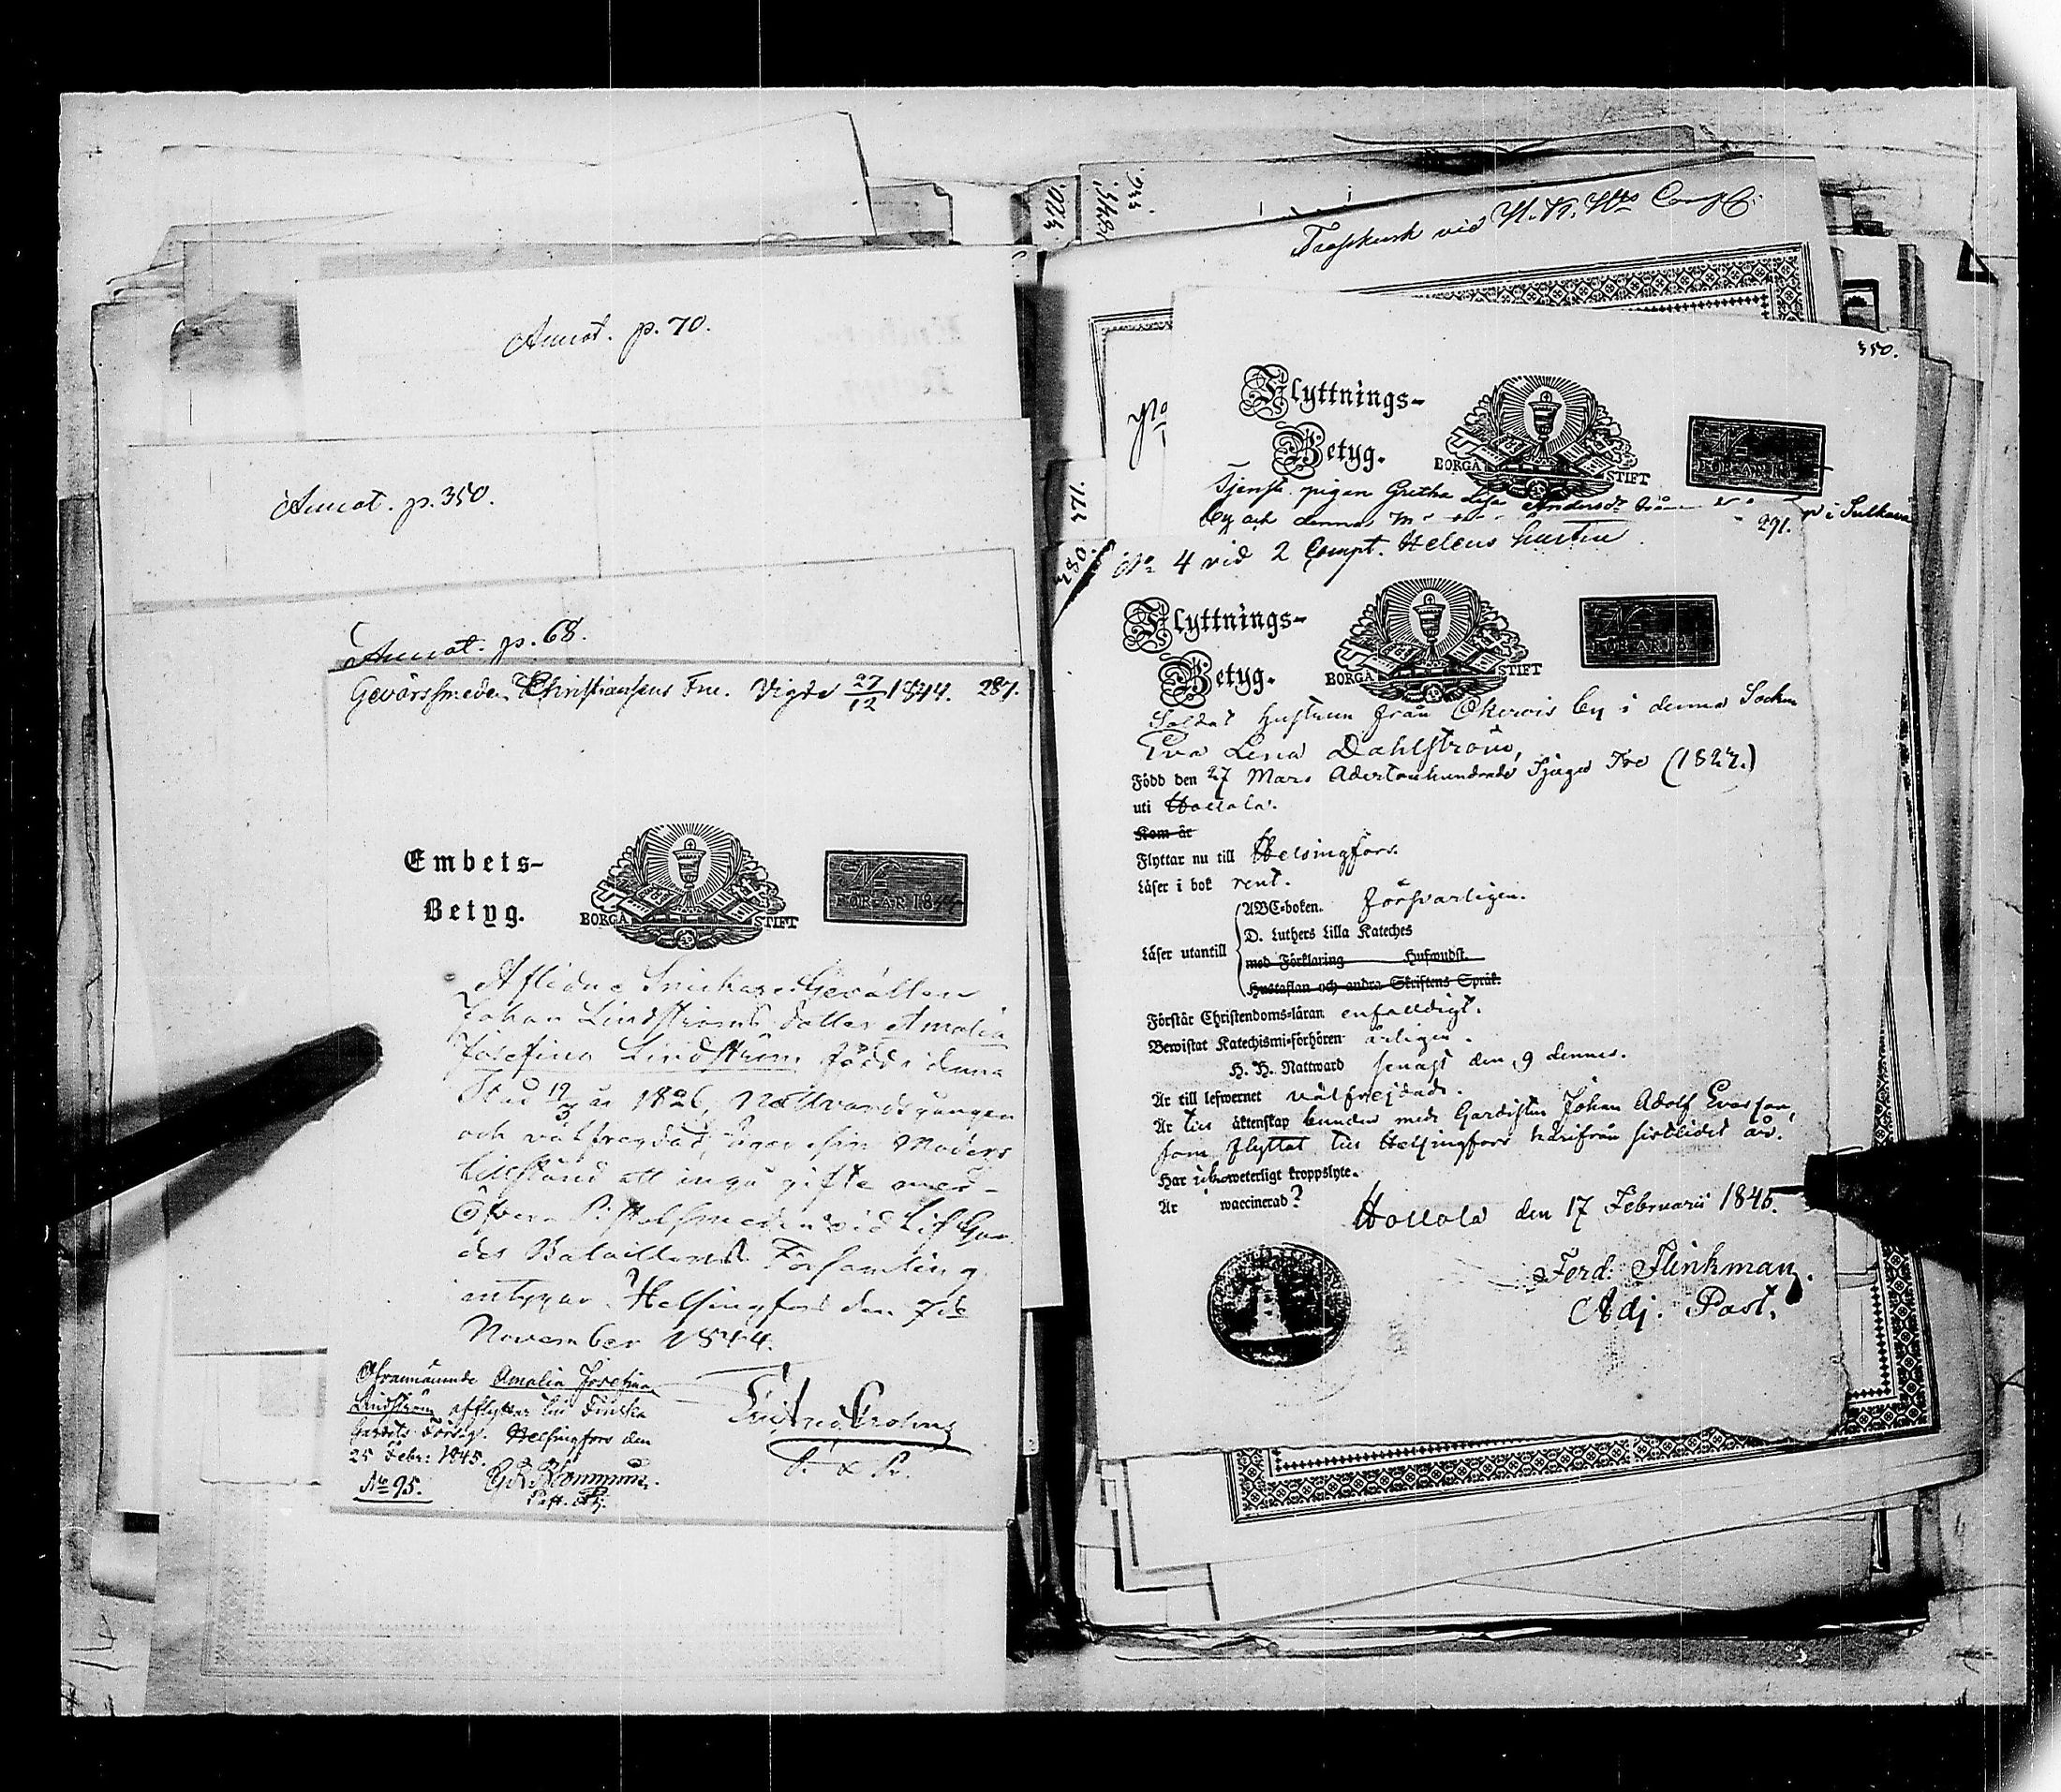 Annot. p. 70.
Annot. p. 350.
Annot. p. 68.
Gevärssmeden Christiansens Fru. Vigde 27/12 1844. 287.
Embets-
Betyg.
BORGÅ STIFT
FÖR ÅR 1844
Aflidne Snickare Gesällen
Johan Lindströms dotter Amalia
Josefina Lindström, född i denna
Stad 19/3 år 1826, Nattvardsgången
och välfrejdad, äger sin Moders
tillstånd att ingå gifte med
Pistolsmeden vid Lif Gar-
des Bataillons Församling
intygar. Helsingfors den 7de
November 1844.
Ofvannämnde Amalia Josefina
Lindström afflyttar till Finska
Gardets Försg. Helsingfors den
25 Febr: 1845.
No 95.
Past. Adj.
320.
348.
336.
vid
350.
No
Flyttnings-
Betyg.
BORGÅ STIFT
Tjenste pigan Gretha Lisa Andersdr från i Sulkava
by och denna
371.
380.
291.
No 4 vid 2 Compt. Helens hustru
Flyttnings-
Betyg.
BORGÅ STIFT
FÖR ÅR 18
Soldat hustrun från Okerois by i denna Sockn
Eva Lena Dahlström,
Född den 27 Mars Adertonhundrade Tjugu Tre (1823.)
uti Hollola.
Kom år
Flyttar nu till Helsingfors.
Läser i bok rent.
ABC-boken. försvarligen.
Läser utantill D. Luthers Lilla Kateches
med Förklaring Hufwudst.
Hustaflan och andra Skriftens Språk.
Förstår Christendoms-läran enfaldigt.
Bewistat Katechismi-förhören årligen.
H. H. Nattward senast den 9 dennes.
Är till lefwernet välfrejdad.
Är till äktenskap bunden med Gardisten Johan Adolf Evasson,
som flyttat till Helsingfors härifrån sistlidet år.
Har weterligt kroppslyte.
Är waccinerad?
Hollola den 17 Februarii 1845.
Ferd. Flinkman.
Adj. Past.